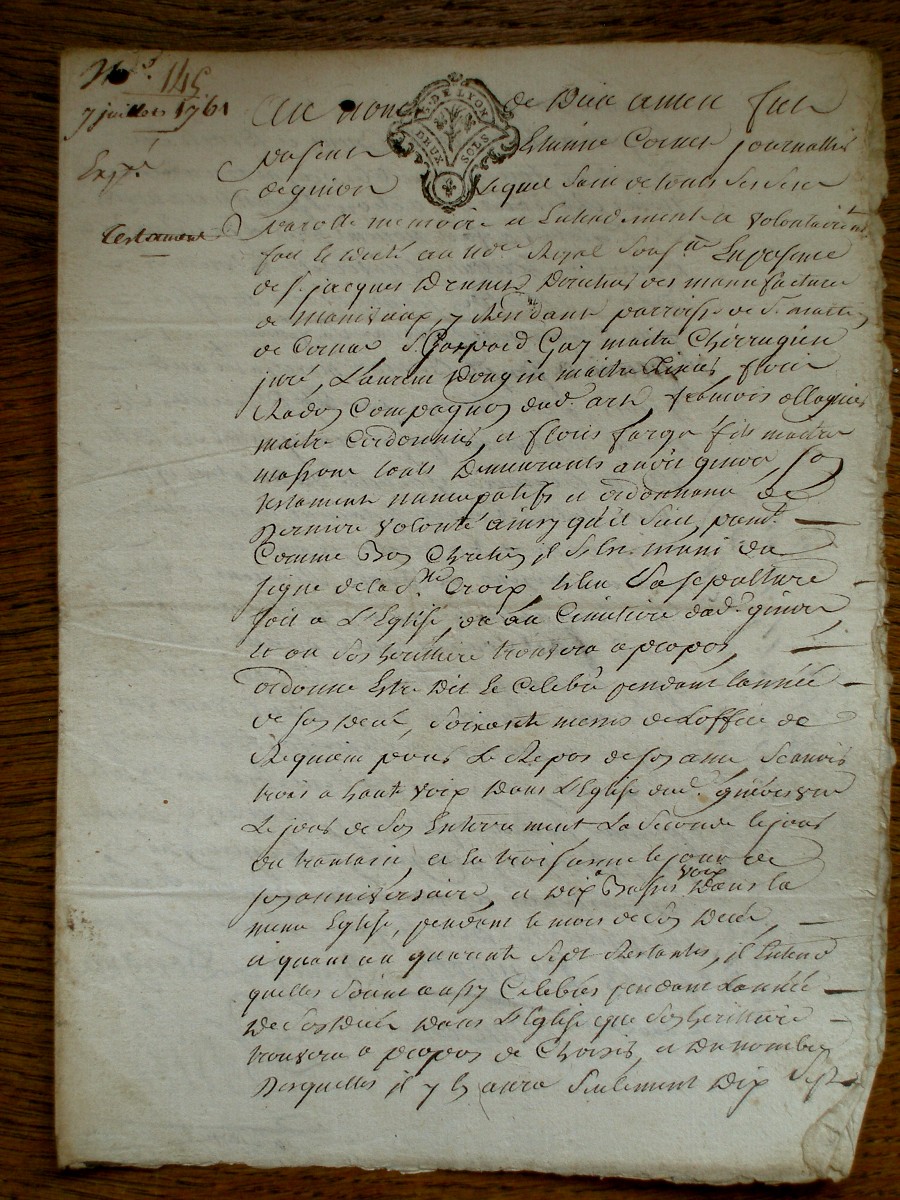 N° 145
7 juillet 1761
Exp.é
Testament
G. DE LYON
DEUX SOLS
Au nom de Dieu amen fut
present Etienne Cornet journallier
de givors lequel sain de touts ses sens
parolle memoire et Entendement a volontairemt
fait le dicté au nore Royal sousné En presence
de sr. jacques Directeur des manufactures
de y Residant parroisse de St. martin
de Cornas sr. Gaspard Guy maitre Chirurgien
juré, Laurent maitre fleury
Compagnon dud. art, francois
maitre Cordonnier, et fleury farge fils maitre
masson touts Demeurants audit givors, son
testament nuncupatif et ordonnance de
Derniere volonté ainsy qu'il suit, prend.t
Comme Bon Chretien il s'est muni du
signe de la Ste. Croix, sa sepulture
soit a L'Eglise, ou au Cimitiere dud. givors
et ou son heritiere trouvera apropos,
ordonne Estre Dit le Celebré pendant lannée
de son deces, soixante messes de Loffice de
Requiem pour Le Repos de son ame, Scavoir
trois a haute voix Dans L'Eglise dud. givors une
Le jour de son Enterrement La seconde le jour
du trantain, et La troisieme le jour de
son anniversaire, et Dix a Basses voix Dans la
meme Eglise, pendant le mois de son Decés,
et quant au quarante Sept Restantes, il Entend
quelles Soient aussy Celebrées pendant Lannée
de son Decé Dans L'Eglise que son heritiere
trouvera a propos de Choisir, et Du nombre
Desquelles il y En aura Seulement Dix Sept